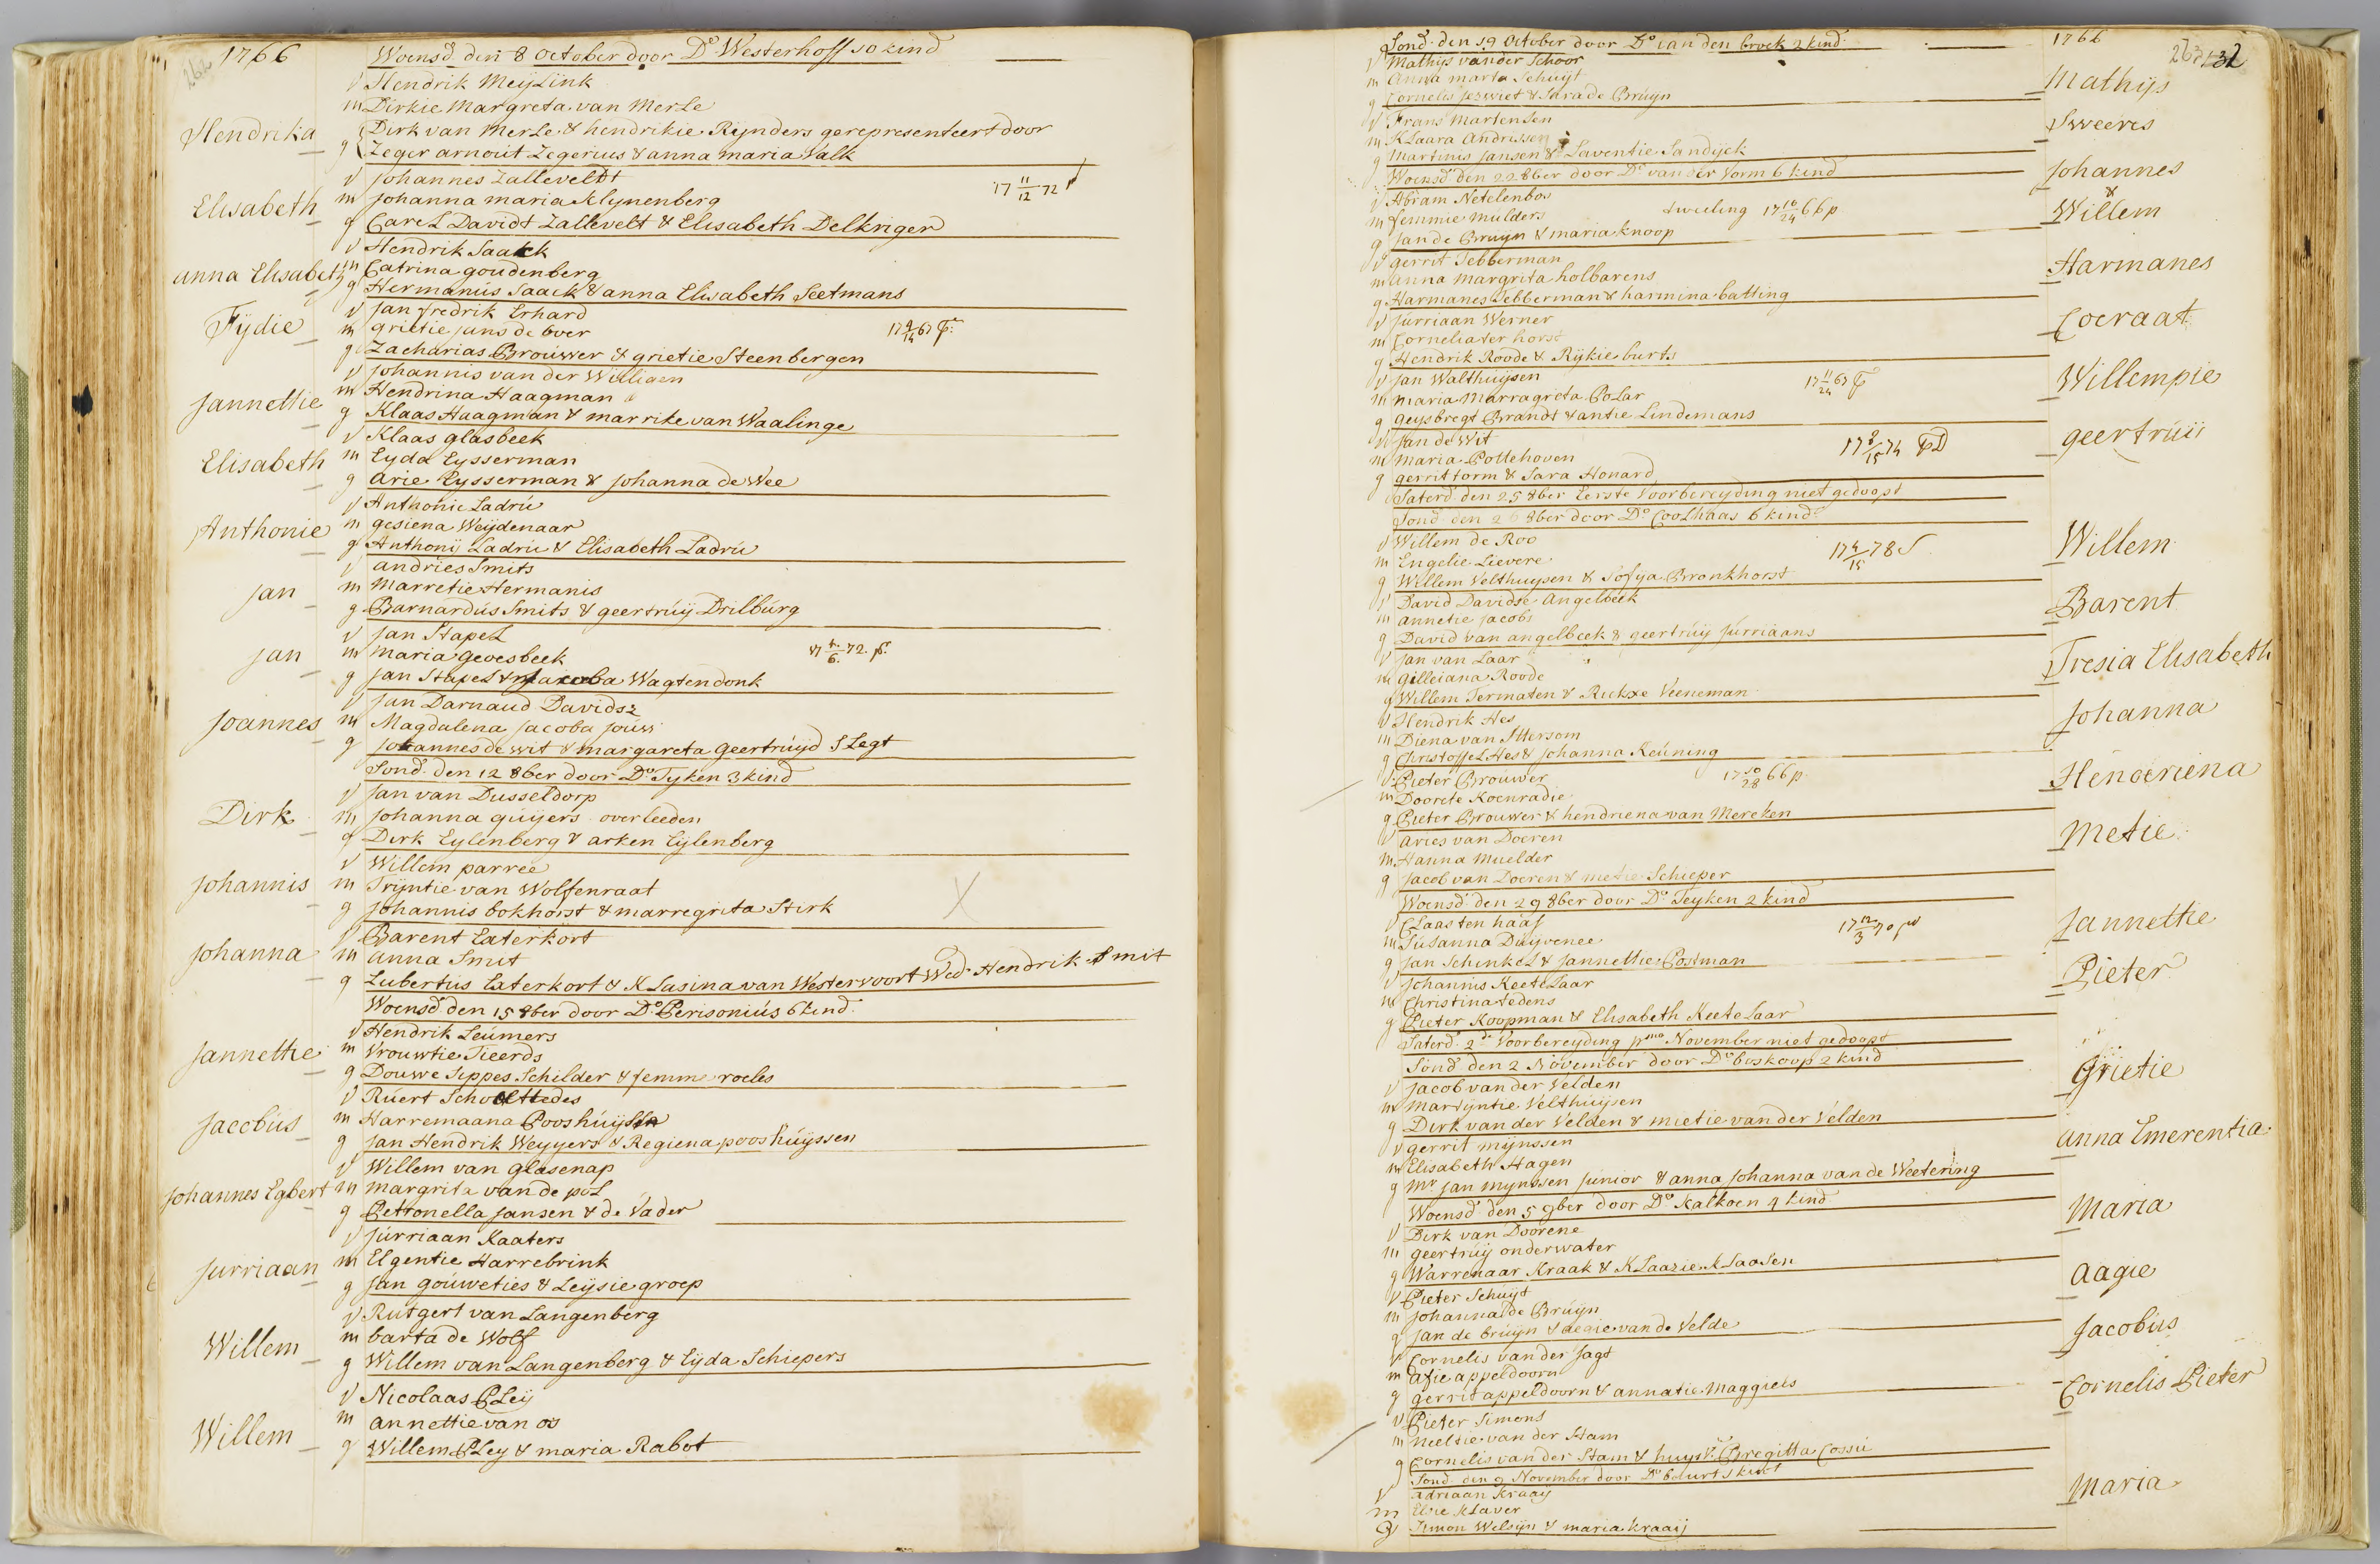 262
1766
Woensd. den 8 October door Do Westerhoff 10 kind
v Hendrik Meijlink
m Dirkie Margreta van Merle
Hendrika
g Dirk van Merle & hendrikie Rijnders gerepresenteert door
Zeger arnout Zegerius & anna maria Valk
v Johannes Zalleveldt
17 11/12 72
Elisabeth
m Johanna maria Klynenberg
g Carel Davidt Zallevelt & Elisabeth Delkriger
v Hendrik Saakck
anna Elisabeth
m Catrina goudenberg
g Hermanus Saack & anna Elisabeth Seetmans
v Jan fredrik Erhard
Fijdie
m grietie jans de boer
17 9/14 67
g Zacharias Brouwer & grietie Steenbergen
v Johannis van der Willigen
Jannettie
m Hendrina Haagman
g Klaas Haagman & marrike van Waalinge
v Klaas glasbeek
Elisabeth
m Eyda Eysserman
g arie Eysserman & Johanna de Wee
v Anthonie Ladru
Anthonie
m gesiena Weijdenaar
g Anthonij Ladru & Elisabeth Ladru
v andries Smits
Jan
m Marretie Hermanis
g Barnardus Smits & geertruij Drilburg
v Jan Stapel
Jan
m maria gevesbeek
17 4/6 72
g Jan Stapel & Jacoba Wagtendonk
v Jan Darnaud Davidsz
Joannes
m Magdalena Jacoba Jouw
g Johannes de wit & margareta geertruijd Slegt
Sond. den 12 8ber door Do Tyken 3 kind
v Jan van Dusseldorp
Dirk
m Johanna guijers overleeden
g Dirk Eylenberg & arken Eijlenberg
v Willem parree
Johannis
m Trijntie van Wolfenraat
g Johannis bokhorst & marregrita Sterk
X
v Barent Eaterkort
Johanna
m anna Smit
g Lubertus Eaterkort & Klasina van Westervoort Wed. Hendrik Smit
Woensd. den 15 8ber door Do Perisonius 6 kind
v Hendrik Leumers
Jannettie
m Vrouwtie Tieerds
g Douwe Seppes Schilder & femme roeles
v Ruert Scholttedes
Jacobus
m Harremaana Pooshuijssn
g Jan Hendrik Weyyers & Regiena pooshuijssen
v Willem van glasenap
Johannes Egbert
m margrita van de pol
g Petronella Jansen & de Vader
v Jurriaan Kaaters
Jurriaan
m Elgentie Harrebrink
g Jan gouweties & Leijsie groep
v Rutgert van Langenberg
Willem
m barta de Wolf
g Willem van Langenberg & Eijda Schiepers
v Nicolaas Pley
Willem
m annettie van os
g Willem Pley & maria Rabot
1766
263
132
Sond. den 19 October door Do van den broek 2 kind
v Mathys van der Schoor
Mathijs
m Anna marta Schuijt
g Cornelis Jeswiet & Sara de Bruyn
v Frans Martensen
Sweeris
m Klaara Andriessen
g Martinus Jansen & Laventie Sandijck
Woensd. den 22 8ber door Do van der Vorm 6 kind
v Abram Netelenbos
Johannes
&
Willem
m femmie mulders
tweeling 17 10/24 66 p
g Jan de Bruyn & maria knoop
v gerrit Tebberman
Harmanes
m anna margrita holbarens
g Harmanes Tebberman & harmina batting
v Jurriaan Werner
Coeraat
m Cornelia ter horst
g Hendrik Roode & Rijkie burts
v Jan Walthuijsen
Willempie
m maria Marragreta Polar
17 11/24 67
g geysbregt Brandt & antie Lindemans
v Jan de Wit
geertruij
m maria Pottehoven
17 8/15 74
g gerrit form & Sara Honard
Saterd. den 25 8ber Eerste Voorbereyding niet gedoopt
Sond. den 26 8ber door Do Coolhaas 6 kind
v Willem de Roo
Willem
m Engelie Lievere
17 4/15 78
g Willem Velthuysen & Sofya Bronkhorst
v David Davidse Angelbeek
Barent
m annetie Jacobs
g David van angelbeek & geertruij Jurriaans
v Jan van Laar
Tresia Elisabeth
m gilleiana Roode
g Willem Termaten & Rickxe Veeneman
v Hendrik Hes
Johanna
m Diena van Ittersom
g Christoffel Hes & Johanna Keuning
v Pieter Brouwer
17 10/28 66 p
Henderiena
m Doorete Koenradie
g Pieter Brouwer & hendriena van Mereken
v Aries van Doeren
Metie
m Hanna Muelder
g Jacob van Doeren & metie Schieper
Woensd. den 29 8ber door Do Teyken 2 kind
v Claas ten haaf
Jannettie
m Susanna Duijvenee
17 12/3 70
g Jan Schinkel & Jannettie Postman
v Johannis Keetelaar
Pieter
m Christina tedens
g Pieter Koopman & Elisabeth Keetelaar
Saterd. 2de Voorbereyding pmo November niet gedoopt
Sond. den 2 November door Do boskoop 2 kind
v Jacob van der Velden
Grietie
m Martijntie Velthuijsen
g Dirk van der Velden & mietie van der Velden
v gerrit mijnssen
anna Emerentia
m Elisabeth Hagen
g Mr Jan mynssen Junior & anna Johanna van de Weetering
Woensd. den 5 9ber door Do Kalkoen 4 kind
v Dirk van Doorene
Maria
m geertruij onderwater
g Warrenaar Kraak & Klaazie Klaasen
v Pieter Schuijt
aagie
m Johanna de Bruijn
g Jan de bruijn & aegie van de Velde
v Cornelis van der Jagt
Jacobus
m afie appeldoorn
g gerrit appeldoorn & annatie Maggiels
v Pieter Simons
Cornelis Pieter
m neeltie van der Stam
g Cornelis van der Stam & huysv. Bregitta Cossu
Sond. den 9 November door Do beburt 1 kind
v adriaan Kraay
Maria
m Elsie Klaver
g Simon Welsijn & maria kraaij